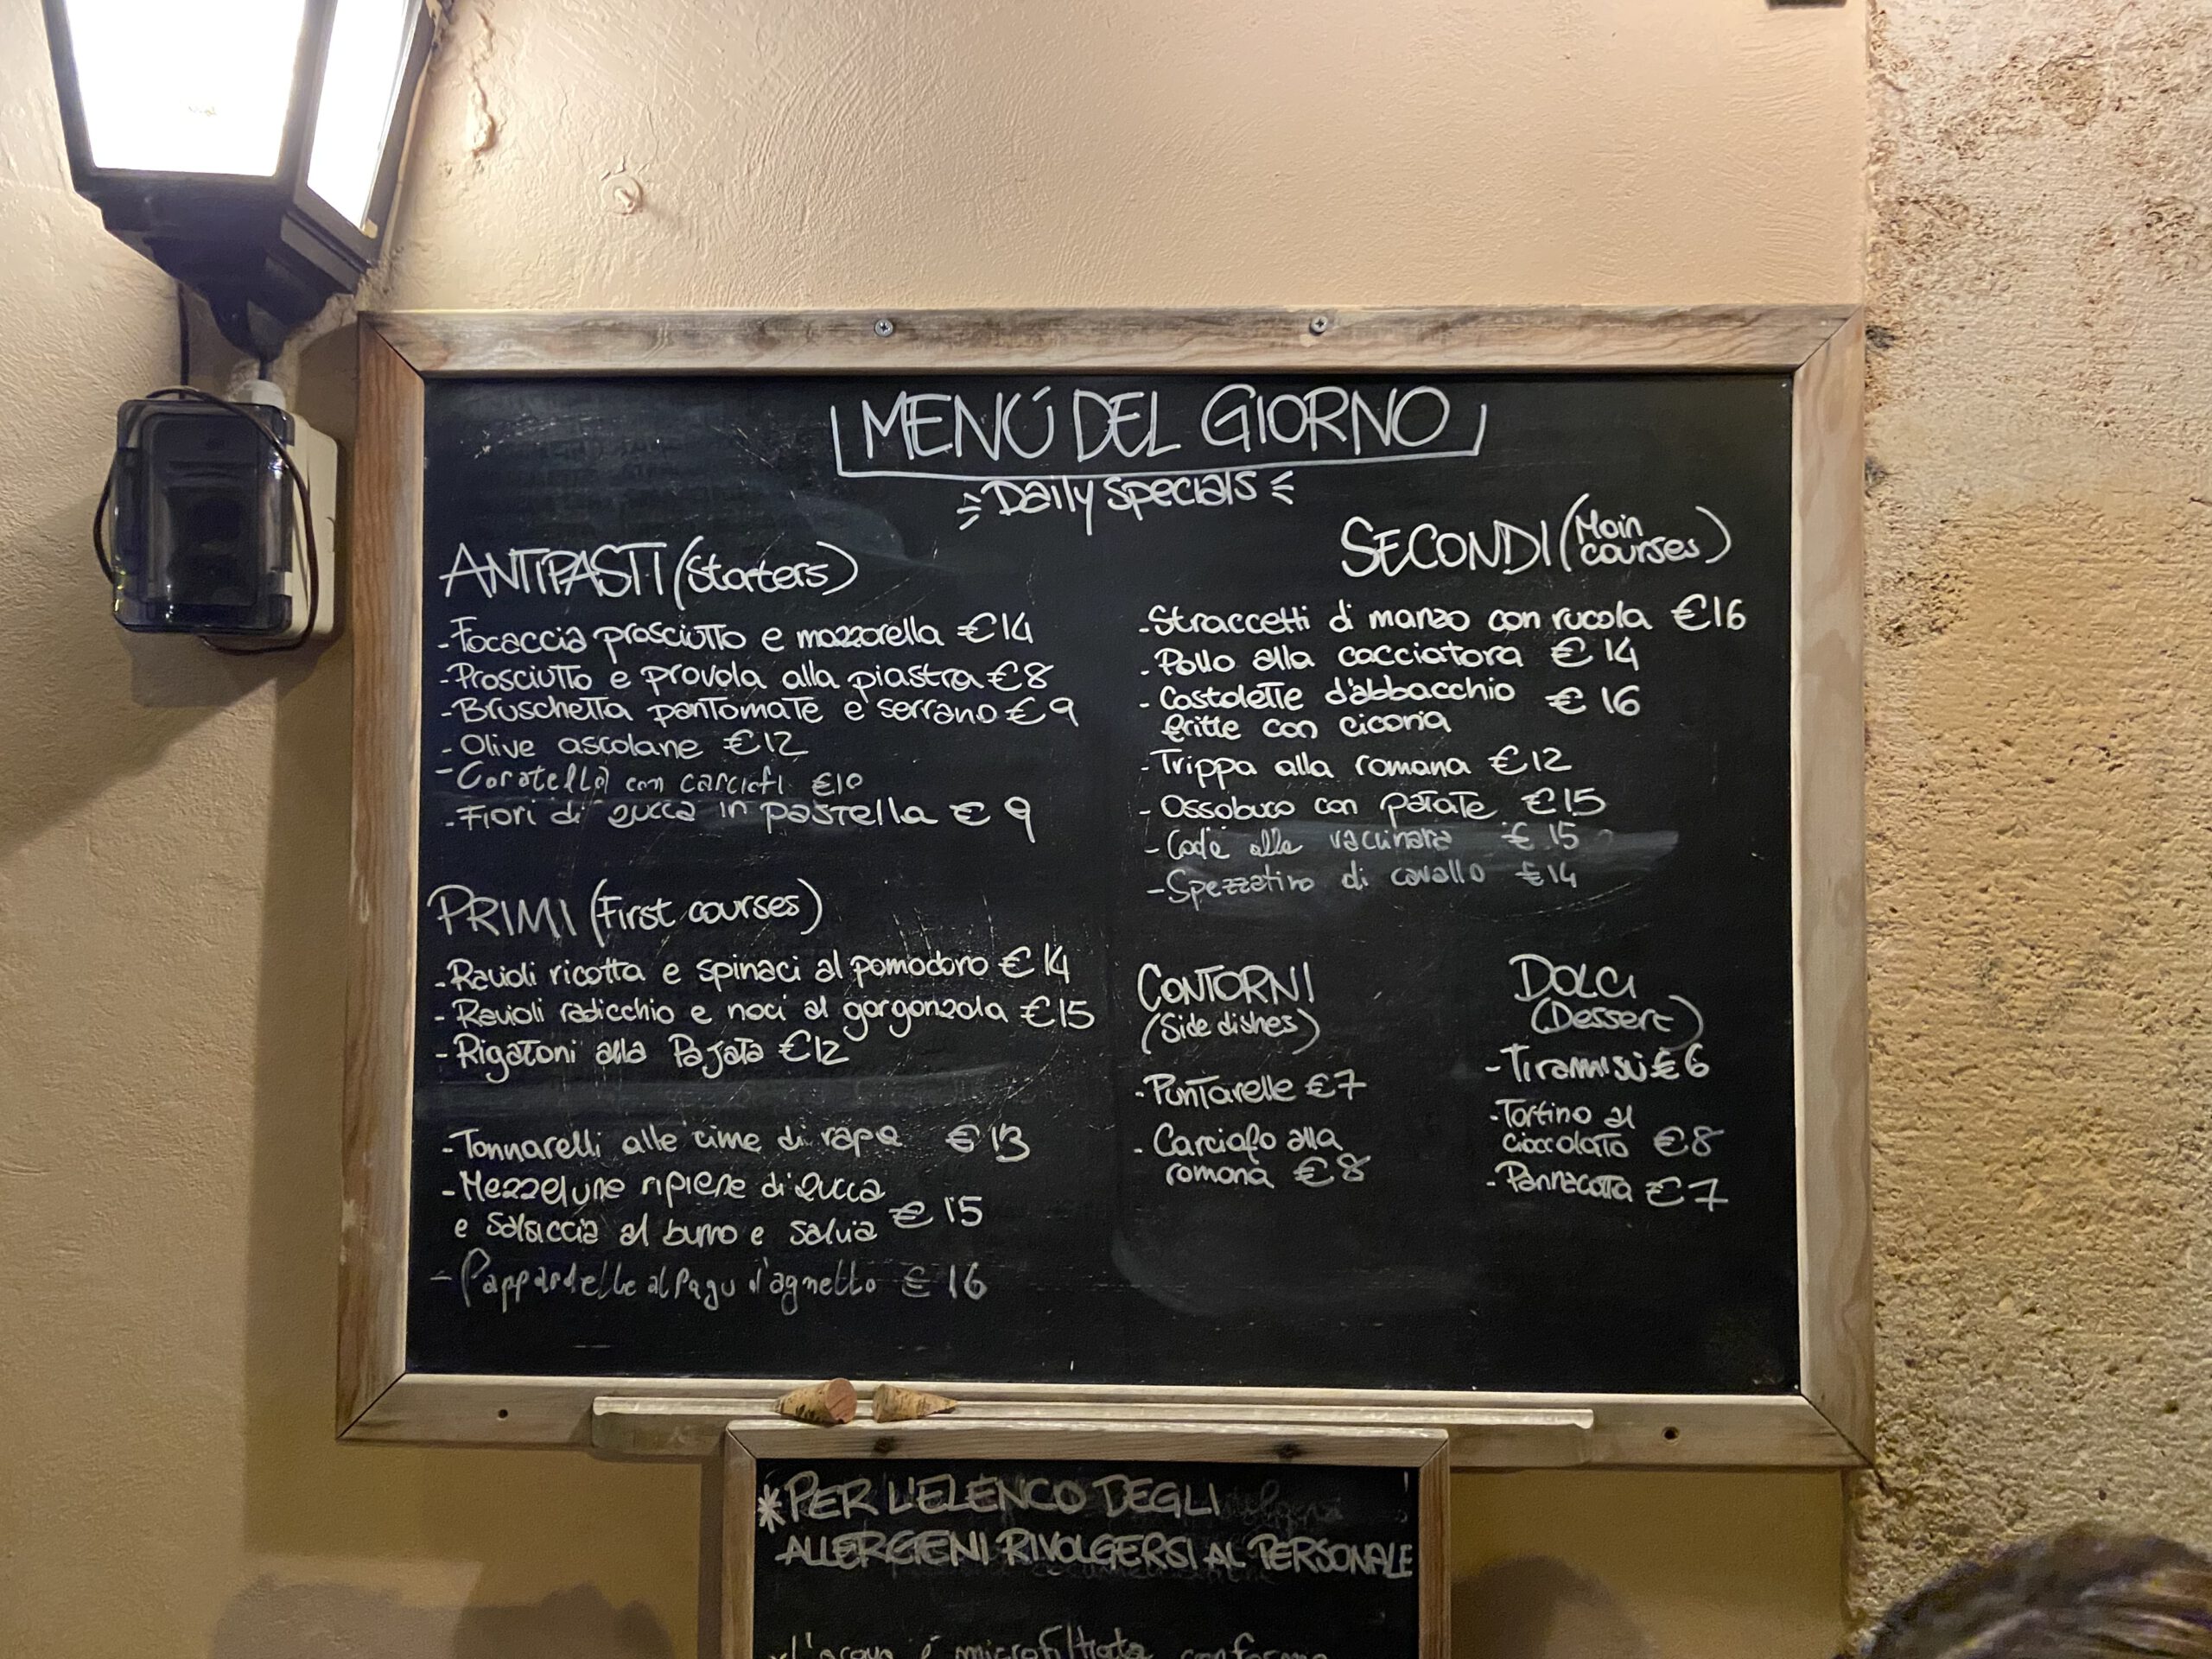 MENÚ DEL GIORNO
Daily specials
ANTIPASTI (Starters)
- Focaccia prosciutto e mozzarella €14
- Prosciutto e provola alla piastra €8
- Bruschetta pantomate e serrano €9
- Olive ascolane €12
- Coratella con carciofi €10
- Fiori di zucca in pastella €9
PRIMI (First courses)
- Ravioli ricotta e spinaci al pomodoro €14
- Ravioli radicchio e noci al gorgonzola €15
- Rigatoni alla Pajata €12
- Tonnarelli alle cime di rapa €13
- Mezzelune ripiene di zucca
e salsiccia al burro e salvia €15
- Pappardelle al ragu d'agnello €16
SECONDI (Main
courses)
- Straccetti di manzo con rucola €16
- Pollo alla cacciatora €14
- Costolette d'abbacchio €16
fritte con cicoria
- Trippa alla romana €12
- Ossobuco con patate €15
- Coda alla vaccinara €15
- Spezzatino di cavallo €14
CONTORNI
(Side dishes)
- Puntarelle €7
- Carciofo alla
romana €8
DOLCI
(Dessert)
- Tiramisù €6
- Tortino al
cioccolato €8
- Pannacotta €7
*PER L'ELENCO DEGLI
ALLERGENI RIVOLGERSI AL PERSONALE
L'acqua é microfiltrata